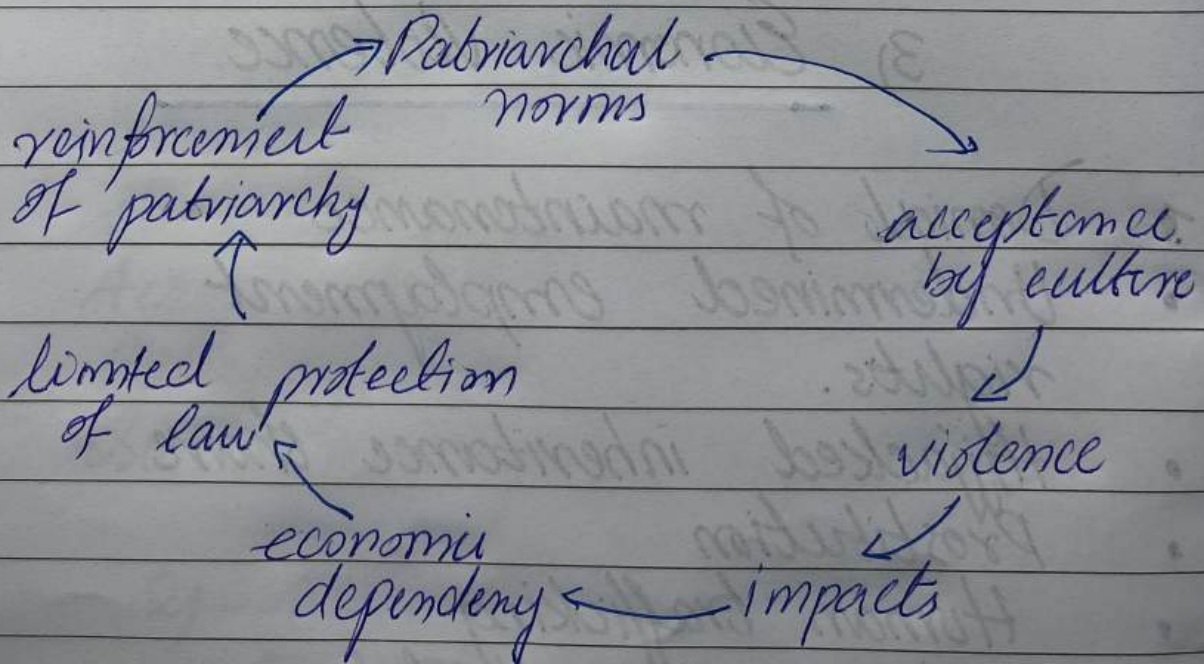 Patriarchal
norms
acceptance.
by culture
violence
impacts
economic
dependeny
limited protection
of law
reinforcement
of patriarchy